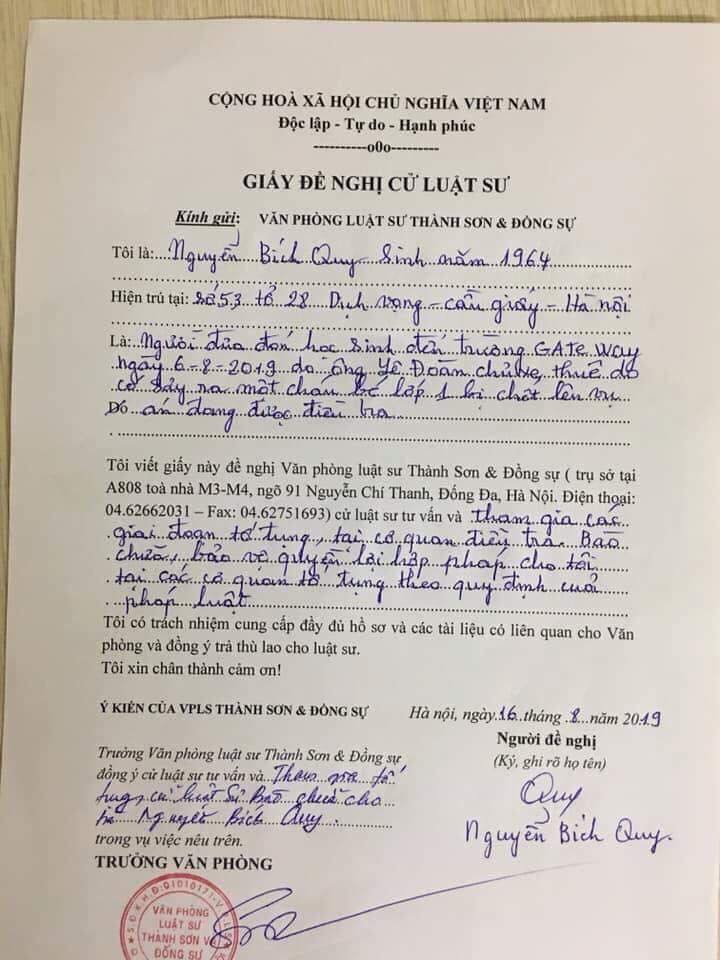 CỘNG HOÀ XÃ HỘI CHỦ NGHĨA VIỆT NAM
Độc lập - Tự do - Hạnh phúc
----------o0o---------
GIẤY ĐỀ NGHỊ CỬ LUẬT SƯ
Kính gửi: VĂN PHÒNG LUẬT SƯ THÀNH SƠN & ĐỒNG SỰ
Tôi là: Nguyễn Bích Quy sinh năm 1964
Hiện trú tại: số 53 tổ 28 Dịch vọng - cầu giấy - Hà nội
Là: Người đưa đón học sinh đến trường GATE Way
ngày 6-8-2019 do ông Doãn chủ xe, thuê do
có sảy ra một cháu bé lớp 1 bị chết lên vụ
Đó án đang được điều tra
Tôi viết giấy này đề nghị Văn phòng luật sư Thành Sơn & Đồng sự ( trụ sở tại
A808 toà nhà M3-M4, ngõ 91 Nguyễn Chí Thanh, Đống Đa, Hà Nội. Điện thoại:
04.62662031 – Fax: 04.62751693) cử luật sư tư vấn và tham gia các
giai đoạn tố tung, tại cơ quan điều tra. Bào
chữa, bảo vệ quyền lợi hợp pháp cho tôi
tại các cơ quan tố tụng theo quy định cuả
pháp luật
Tôi có trách nhiệm cung cấp đầy đủ hồ sơ và các tài liệu có liên quan cho Văn
phòng và đồng ý trả thù lao cho luật sư.
Tôi xin chân thành cảm ơn!
Ý KIẾN CỦA VPLS THÀNH SƠN & ĐỒNG SỰ
Trưởng Văn phòng luật sư Thành Sơn & Đồng sự
đồng ý cử luật sư tư vấn và Tham gia tố
tụng, cử luật sư Bào chữa cho
bà Nguyễn Bích Quy
trong vụ việc nêu trên.
TRƯỞNG VĂN PHÒNG
VĂN PHÒNG
LUẬT SƯ
THÀNH SƠN VÀ
ĐỒNG SỰ
Hà nội, ngày 16 tháng 8 năm 2019
Người đề nghị
(Ký, ghi rõ họ tên)
Quy
Nguyễn Bích Quy.